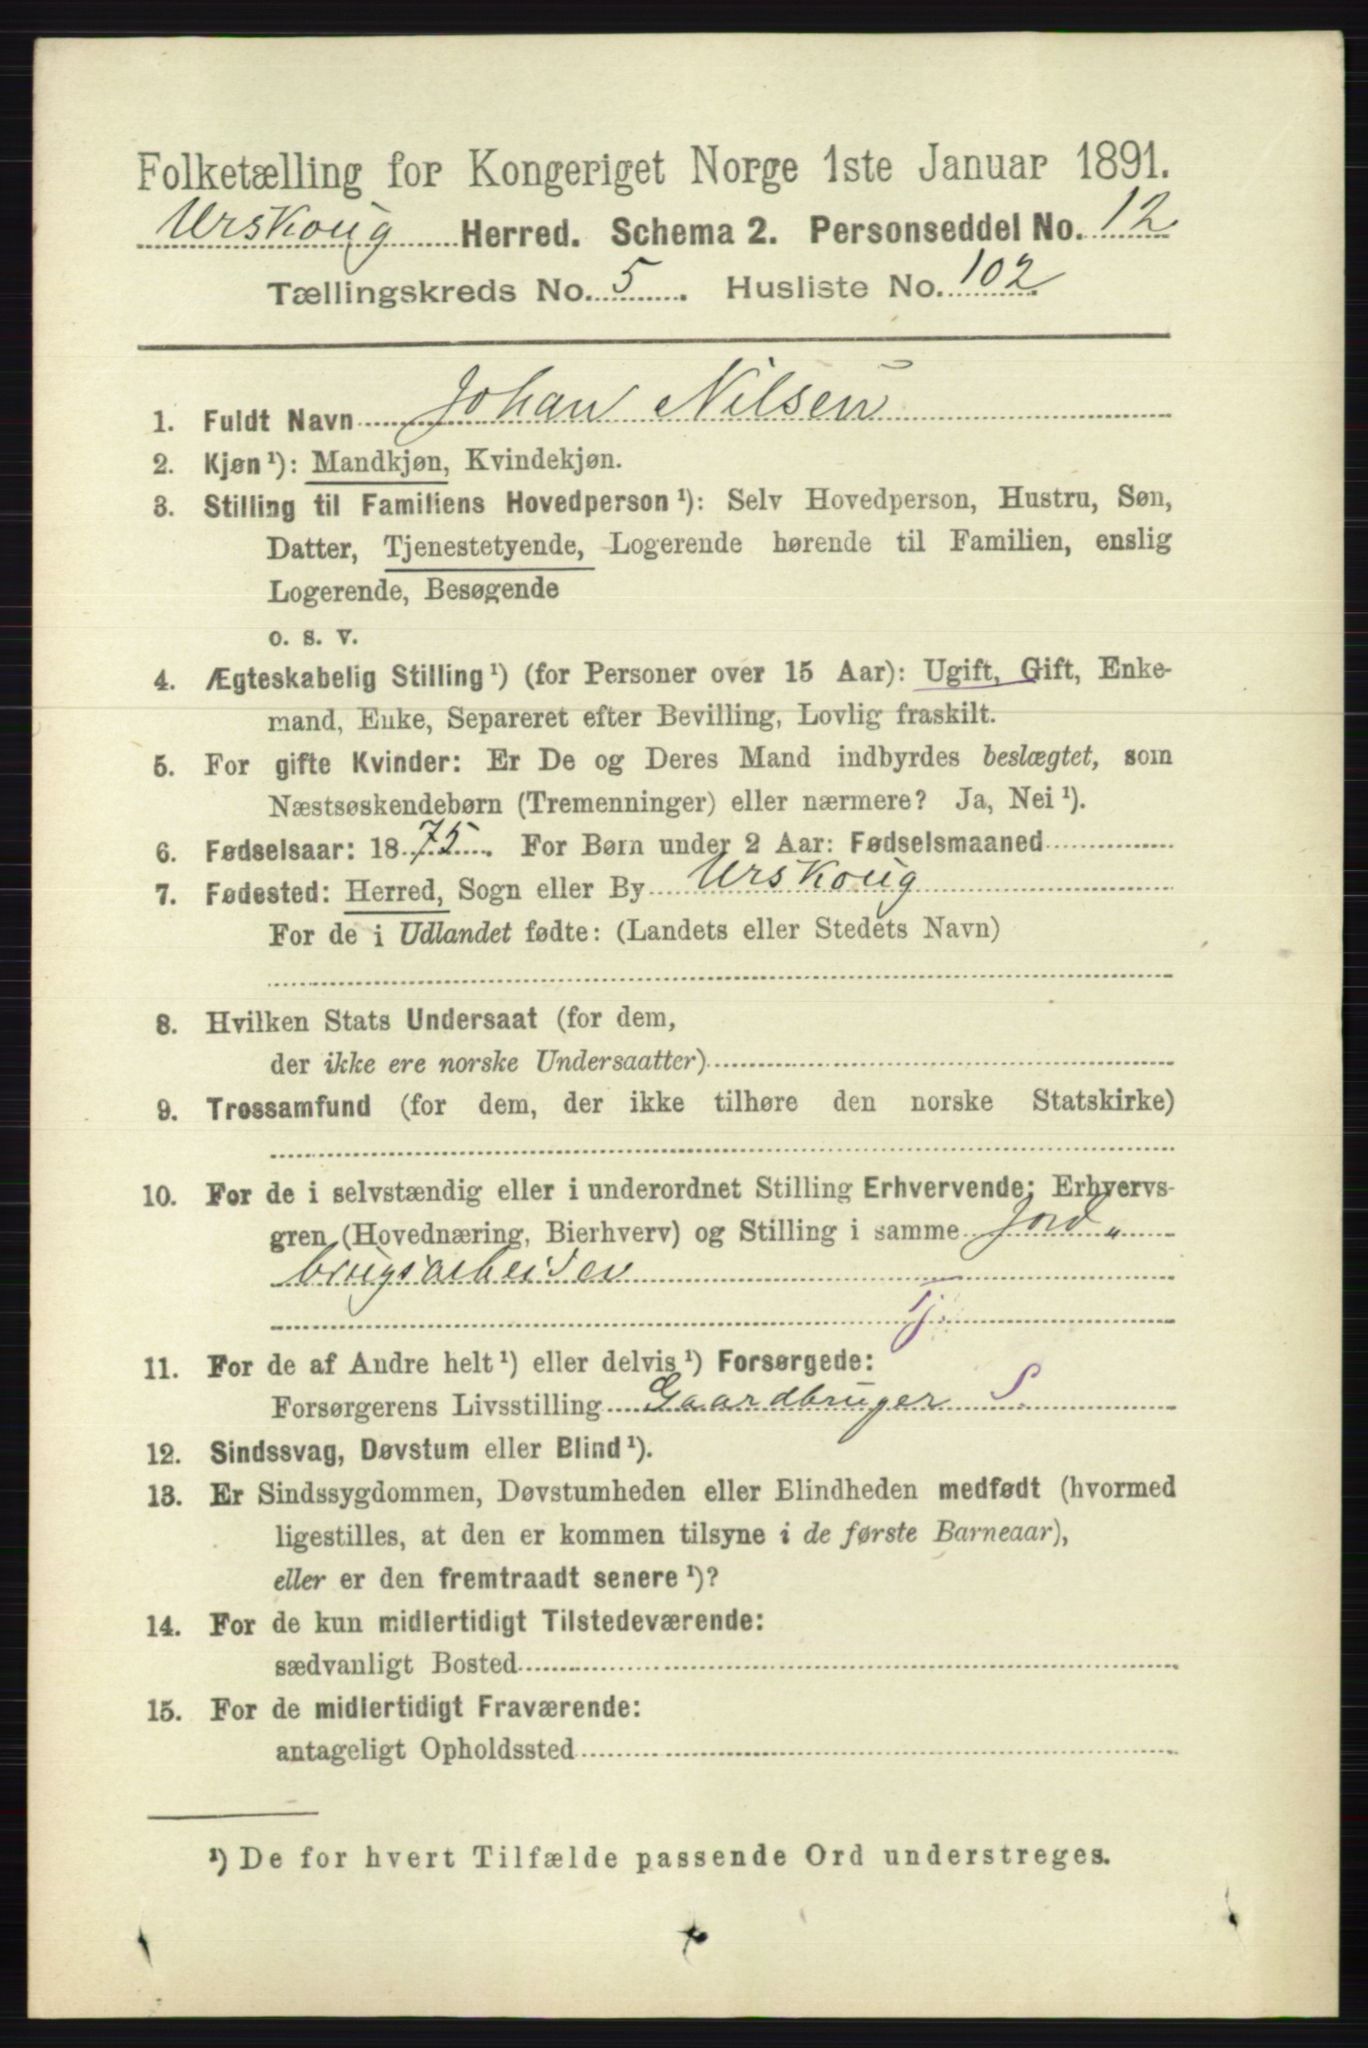 Folketælling for Kongeriget Norge 1ste Januar 1891.
Urskoug Herred. Schema 2. Personseddel No. 12
Tællingskreds No. 5. Husliste No. 102
1. Fuldt Navn Johan Nilsen
2. Kjøn¹): Mandkjøn, Kvindekjøn.
3. Stilling til Familiens Hovedperson¹): Selv Hovedperson, Hustru, Søn,
Datter, Tjenestetyende, Logerende hørende til Familien, enslig
Logerende, Besøgende
o. s. v.
4. Ægteskabelig Stilling¹) (for Personer over 15 Aar): Ugift, Gift, Enke-
mand, Enke, Separeret efter Bevilling, Lovlig fraskilt.
5. For gifte Kvinder: Er De og Deres Mand indbyrdes beslægtet, som
Næstsøskendebørn (Tremenninger) eller nærmere? Ja, Nei¹).
6. Fødselsaar: 1875. For Børn under 2 Aar: Fødselsmaaned
7. Fødested: Herred, Sogn eller By Urskoug
For de i Udlandet fødte: (Landets eller Stedets Navn)
8. Hvilken Stats Undersaat (for dem,
der ikke ere norske Undersaatter)
9. Trossamfund (for dem, der ikke tilhøre den norske Statskirke)
10. For de i selvstændig eller i underordnet Stilling Erhvervende: Erhvervs-
gren (Hovednæring, Bierhverv) og Stilling i samme Jord„
brugsarbeider
Tj.
11. For de af Andre helt¹) eller delvis¹) Forsørgede:
Forsørgerens Livsstilling Gaardbruger S.
12. Sindssvag, Døvstum eller Blind¹).
13. Er Sindssygdommen, Døvstumheden eller Blindheden medfødt (hvormed
ligestilles, at den er kommen tilsyne i de første Barneaar),
eller er den fremtraadt senere¹)?
14. For de kun midlertidigt Tilstedeværende:
sædvanligt Bosted
15. For de midlertidigt Fraværende:
antageligt Opholdssted
¹) De for hvert Tilfælde passende Ord understreges.